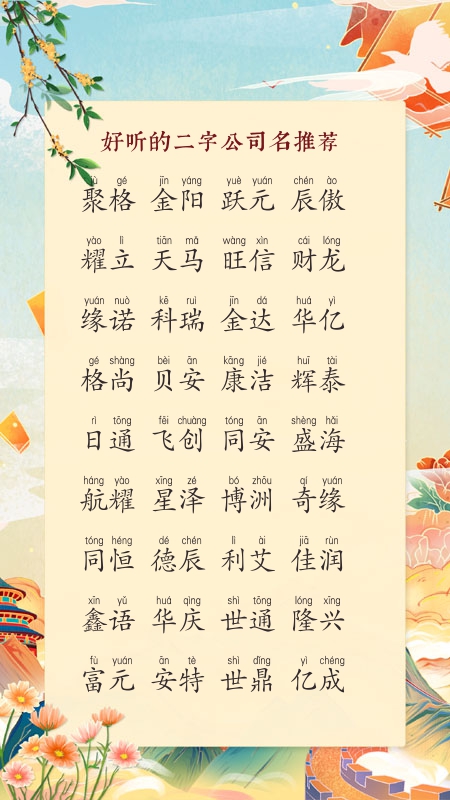 好听的二字公司名推荐
jù gé jīn yáng yuè yuán chén ào
聚格 金阳 跃元 辰傲
yào lì tiān mǎ wàng xìn cái lóng
耀立 天马 旺信 财龙
yuán nuò kē ruì jīn dá huá yì
缘诺 科瑞 金达 华亿
gé shàng bèi ān kāng jié huī tài
格尚 贝安 康洁 辉泰
rì tōng fēi chuàng tóng ān shèng hǎi
日通 飞创 同安 盛海
háng yào xīng zé bó zhōu qí yuán
航耀 星泽 博洲 奇缘
tóng héng dé chén lì ài jiā rùn
同恒 德辰 利艾 佳润
xīn yǔ huá qìng shì tōng lóng xīng
鑫语 华庆 世通 隆兴
fù yuán ān tè shì dǐng yì chéng
富元 安特 世鼎 亿成